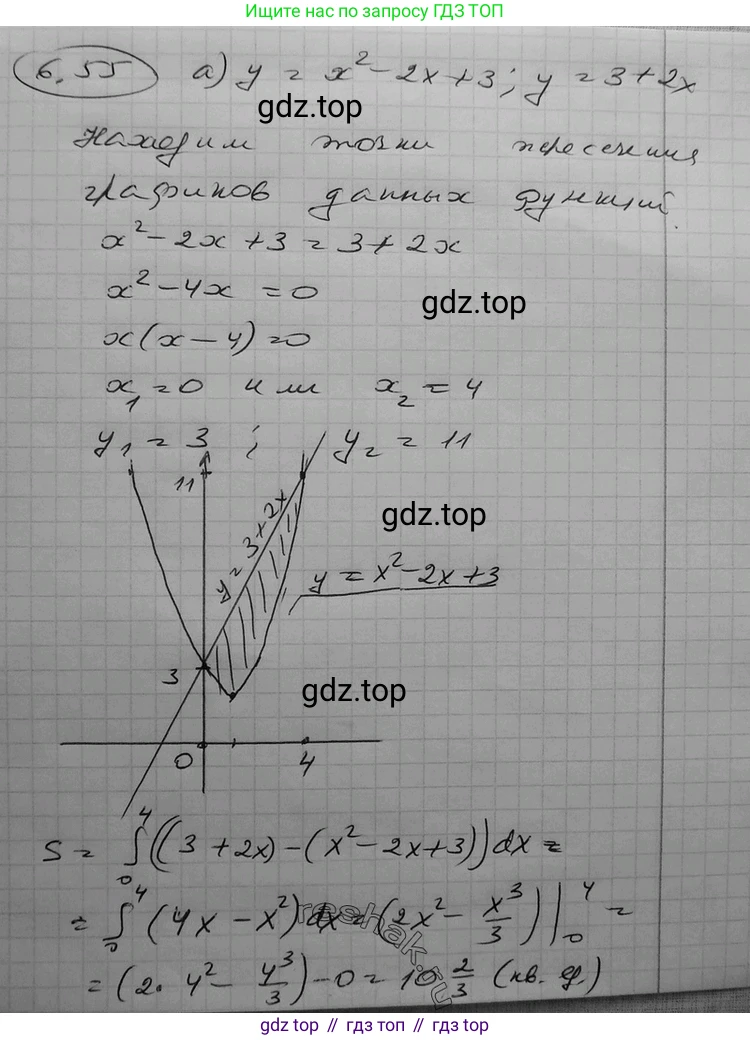 Ищите нас по запросу ГДЗ ТОП
6.55 а) y = x² - 2x + 3; y = 3 + 2x
gdz.top
Находим точки пересечения
графиков данных функций.
x² - 2x + 3 = 3 + 2x
x² - 4x = 0
gdz.top
x(x - 4) = 0
x₁ = 0 или x₂ = 4
y₁ = 3 ; y₂ = 11
11
gdz.top
y = 3 + 2x
y = x² - 2x + 3
3
gdz.top
0 4
S = ∫₀⁴ ((3 + 2x) - (x² - 2x + 3)) dx =
= ∫₀⁴ (4x - x²) dx = (2x² - x³/3) |₀⁴ =
reshak.ru
= (2 · 4² - 4³/3) - 0 = 10 2/3 (кв. ед.)
gdz top // гдз топ // gdz top